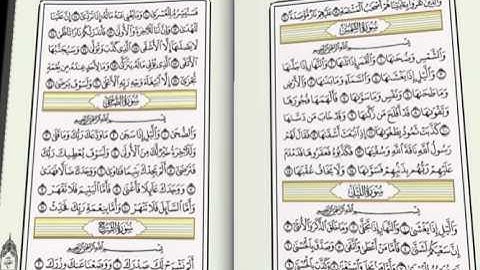 وَٱلَّذِينَ كَفَرُوا۟ بِـَٔايَـٰتِنَا هُمْ أَصْحَـٰبُ ٱلْمَشْـَٔمَةِ ١٩ عَلَيْهِمْ نَارٌ مُّؤْصَدَةٌۢ ٢٠
سُورَةُ الشَّمْسِ
بِسْمِ ٱللَّهِ ٱلرَّحْمَـٰنِ ٱلرَّحِيمِ
وَٱلشَّمْسِ وَضُحَىٰهَا ١ وَٱلْقَمَرِ إِذَا تَلَىٰهَا ٢ وَٱلنَّهَارِ إِذَا جَلَّىٰهَا
٣ وَٱلَّيْلِ إِذَا يَغْشَىٰهَا ٤ وَٱلسَّمَآءِ وَمَا بَنَىٰهَا ٥ وَٱلْأَرْضِ وَمَا
طَحَىٰهَا ٦ وَنَفْسٍ وَمَا سَوَّىٰهَا ٧ فَأَلْهَمَهَا فُجُورَهَا
وَتَقْوَىٰهَا ٨ قَدْ أَفْلَحَ مَن زَكَّىٰهَا ٩ وَقَدْ خَابَ مَن دَسَّىٰهَا
١٠ كَذَّبَتْ ثَمُودُ بِطَغْوَىٰهَآ ١١ إِذِ ٱنۢبَعَثَ أَشْقَىٰهَا ١٢ فَقَالَ لَهُمْ
رَسُولُ ٱللَّهِ نَاقَةَ ٱللَّهِ وَسُقْيَـٰهَا ١٣ فَكَذَّبُوهُ فَعَقَرُوهَا فَدَمْدَمَ
عَلَيْهِمْ رَبُّهُم بِذَنۢبِهِمْ فَسَوَّىٰهَا ١٤ وَلَا يَخَافُ عُقْبَـٰهَا ١٥
سُورَةُ اللَّيْلِ
بِسْمِ ٱللَّهِ ٱلرَّحْمَـٰنِ ٱلرَّحِيمِ
وَٱلَّيْلِ إِذَا يَغْشَىٰ ١ وَٱلنَّهَارِ إِذَا تَجَلَّىٰ ٢ وَمَا خَلَقَ ٱلذَّكَرَ وَٱلْأُنثَىٰٓ
٣ إِنَّ سَعْيَكُمْ لَشَتَّىٰ ٤ فَأَمَّا مَنْ أَعْطَىٰ وَٱتَّقَىٰ ٥ وَصَدَّقَ بِٱلْحُسْنَىٰ ٦
فَسَنُيَسِّرُهُۥ لِلْعُسْرَىٰ ١٠ وَمَا يُغْنِى عَنْهُ مَالُهُۥٓ إِذَا تَرَدَّىٰٓ ١١ إِنَّ عَلَيْنَا
لَلْهُدَىٰ ١٢ وَإِنَّ لَنَا لَلْـَٔاخِرَةَ وَٱلْأُولَىٰ ١٣ فَأَنذَرْتُكُمْ نَارًا تَلَظَّىٰ ١٤
لَا يَصْلَىٰهَآ إِلَّا ٱلْأَشْقَى ١٥ ٱلَّذِى كَذَّبَ وَتَوَلَّىٰ ١٦ وَسَيُجَنَّبُهَا
ٱلْأَتْقَى ١٧ ٱلَّذِى يُؤْتِى مَالَهُۥ يَتَزَكَّىٰ ١٨ وَمَا لِأَحَدٍ عِندَهُۥ مِن نِّعْمَةٍ
تُجْزَىٰٓ ١٩ إِلَّا ٱبْتِغَآءَ وَجْهِ رَبِّهِ ٱلْأَعْلَىٰ ٢٠ وَلَسَوْفَ يَرْضَىٰ ٢١
سُورَةُ الضُّحَىٰ
بِسْمِ ٱللَّهِ ٱلرَّحْمَـٰنِ ٱلرَّحِيمِ
وَٱلضُّحَىٰ ١ وَٱلَّيْلِ إِذَا سَجَىٰ ٢ مَا وَدَّعَكَ رَبُّكَ وَمَا قَلَىٰ ٣
وَلَلْـَٔاخِرَةُ خَيْرٌ لَّكَ مِنَ ٱلْأُولَىٰ ٤ وَلَسَوْفَ يُعْطِيكَ رَبُّكَ
فَتَرْضَىٰٓ ٥ أَلَمْ يَجِدْكَ يَتِيمًا فَـَٔاوَىٰ ٦ وَوَجَدَكَ ضَآلًّا فَهَدَىٰ
٧ وَوَجَدَكَ عَآئِلًا فَأَغْنَىٰ ٨ فَأَمَّا ٱلْيَتِيمَ فَلَا تَقْهَرْ
٩ وَأَمَّا ٱلسَّآئِلَ فَلَا تَنْهَرْ ١٠ وَأَمَّا بِنِعْمَةِ رَبِّكَ فَحَدِّثْ ١١
سُورَةُ الشَّرْحِ
بِسْمِ ٱللَّهِ ٱلرَّحْمَـٰنِ ٱلرَّحِيمِ
أَلَمْ نَشْرَحْ لَكَ صَدْرَكَ ١ وَوَضَعْنَا عَنكَ وِزْرَكَ ٢